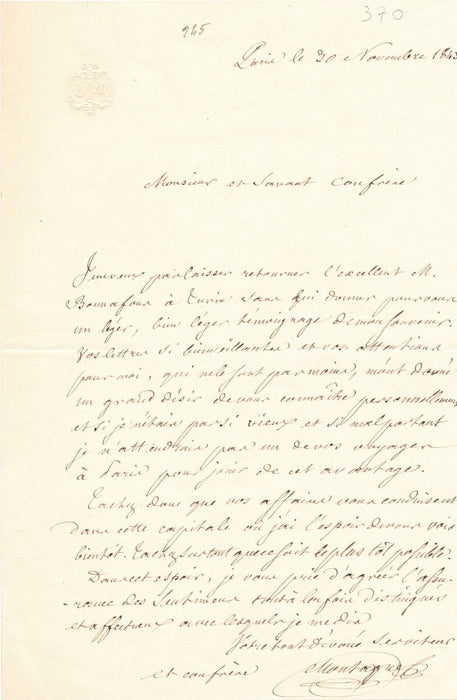 370
245
Paris le 30 Novembre 184
Monsieur et Savant confrère
Je ne veux pas laisser retourner l'excellent M.
Bonnafous à Turin sans lui donner pour vous
un léger, bien léger témoignage de mon souvenir.
Vos lettres si bienveillantes et vos attentions
pour moi, qui ne le sont pas moins, m'ont donné
un grand désir de vous connaître personnellement
et si je n'étais pas si vieux et si mal portant
je n'attendrais pas un de vos voyages
à Paris pour jouir de cet avantage.
Tachez donc que vos affaires vous conduisent
dans cette capitale où j'ai l'espoir de vous voir
bientôt. Tachez surtout que ce soit le plus tôt possible.
Dans cet espoir, je vous prie d'agréer l'assu-
-rance des sentimens tout à la fois distingués
et affectueux avec lesquels je me dis
Votre tout dévoué Serviteur
et confrère Montagne